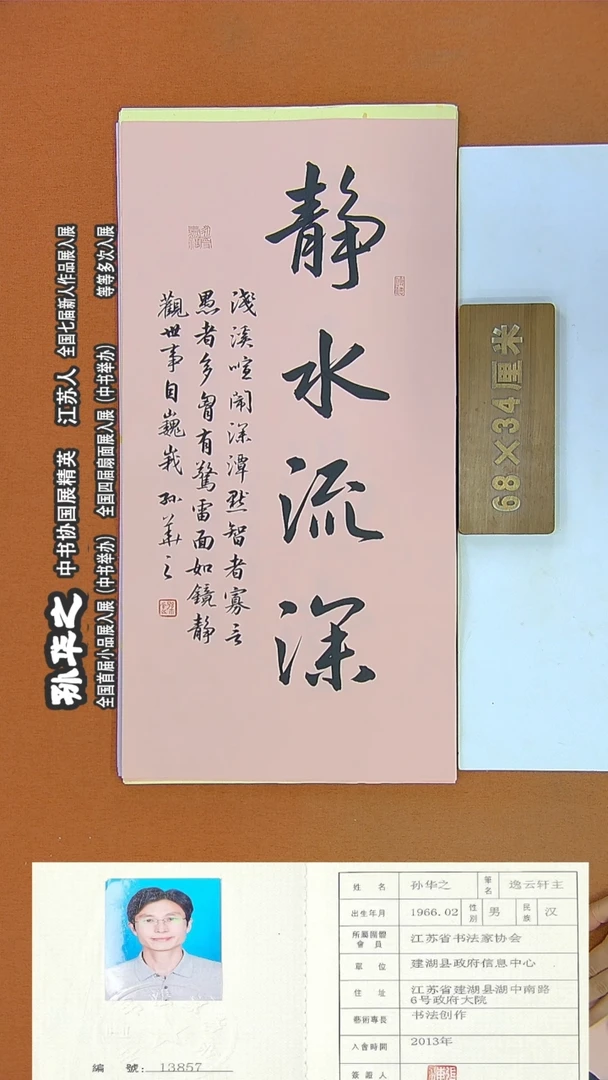 静水流深
淺溪喧闹深潭默智者寡言
愚者多曾有驚雷面如鏡静
觀世事自巍峩 孙華之
68×34厘米
孙华之 中书协国展精英 江苏人 全国七届新人作品展入展
全国首届小品展入展（中书举办） 全国四届扇面展入展（中书举办） 等等多次入展
姓名 孙华之 筆名 逸云轩主
出生年月 1966.02 性别 男 民族 汉
所屬團體會員 江苏省书法家协会
單位 建湖县政府信息中心
住址 江苏省建湖县湖中南路
6号政府大院
藝術專長 书法创作
入會時間 2013年
簽證人
編號: 13857